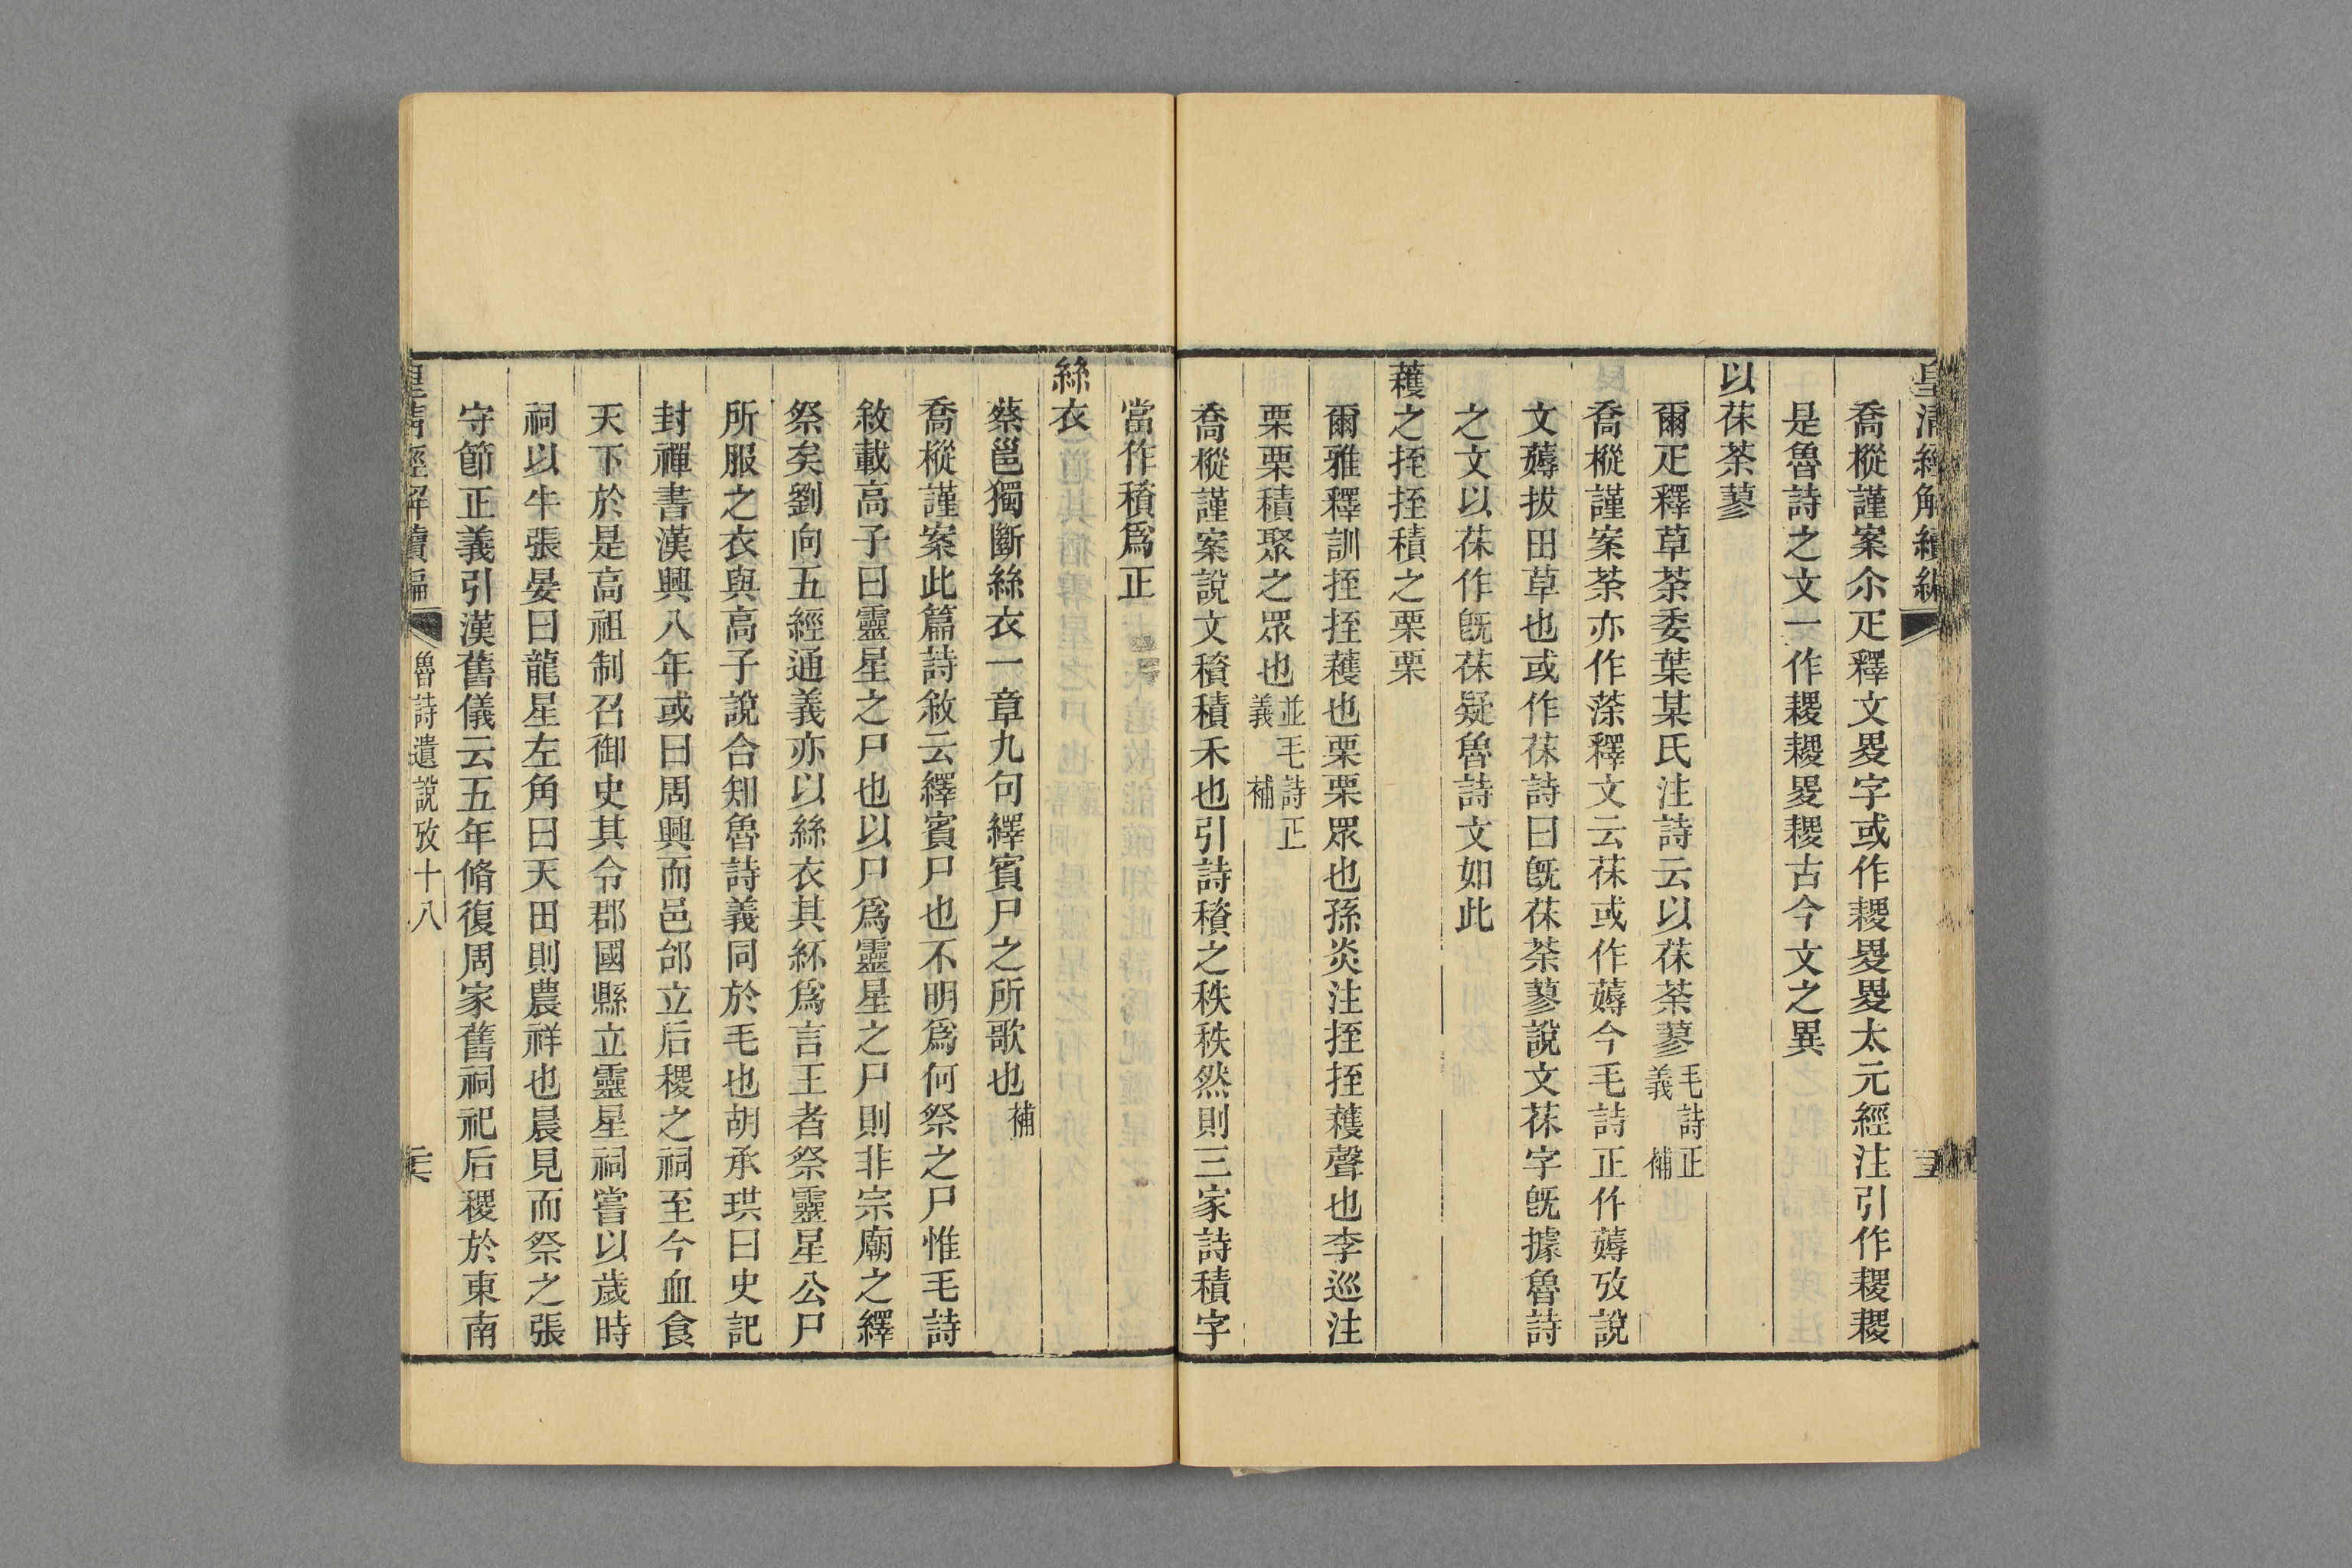 皇清經解續編
喬樅謹案尒疋釋文畟字或作稷畟畟太元經注引作稷稷
是魯詩之文一作稷稷畟稷古今文之異
以茠荼蓼
爾疋釋草荼委葉某氏注詩云以茠荼蓼毛詩正義補
喬樅謹案荼亦作蒤釋文云茠或作薅今毛詩正作薅攷說
文薅拔田草也或作茠詩曰旣茠荼蓼說文茠字旣據魯詩
之文以茠作旣茠疑魯詩文如此
穫之挃挃積之栗栗
爾雅釋訓挃挃穫也栗栗眾也孫炎注挃挃穫聲也李巡注
栗栗積聚之眾也並毛詩正義補
喬樅謹案說文䅣積禾也引詩䅣之秩秩然則三家詩積字
當作䅣爲正
絲衣
蔡邕獨斷絲衣一章九句繹賓尸之所歌也補
喬樅謹案此篇詩敘云繹賓尸也不明爲何祭之尸惟毛詩
敘載高子曰靈星之尸也以尸爲靈星之尸則非宗廟之繹
祭矣劉向五經通義亦以絲衣其紑爲言王者祭靈星公尸
所服之衣與高子說合知魯詩義同於毛也胡承珙曰史記
封禪書漢興八年或曰周興而邑邰立后稷之祠至今血食
天下於是高祖制召御史其令郡國縣立靈星祠嘗以歲時
祠以牛張晏曰龍星左角曰天田則農祥也晨見而祭之張
守節正義引漢舊儀云五年脩復周家舊祠祀后稷於東南
皇清經解續編 魯詩遺說攷十八